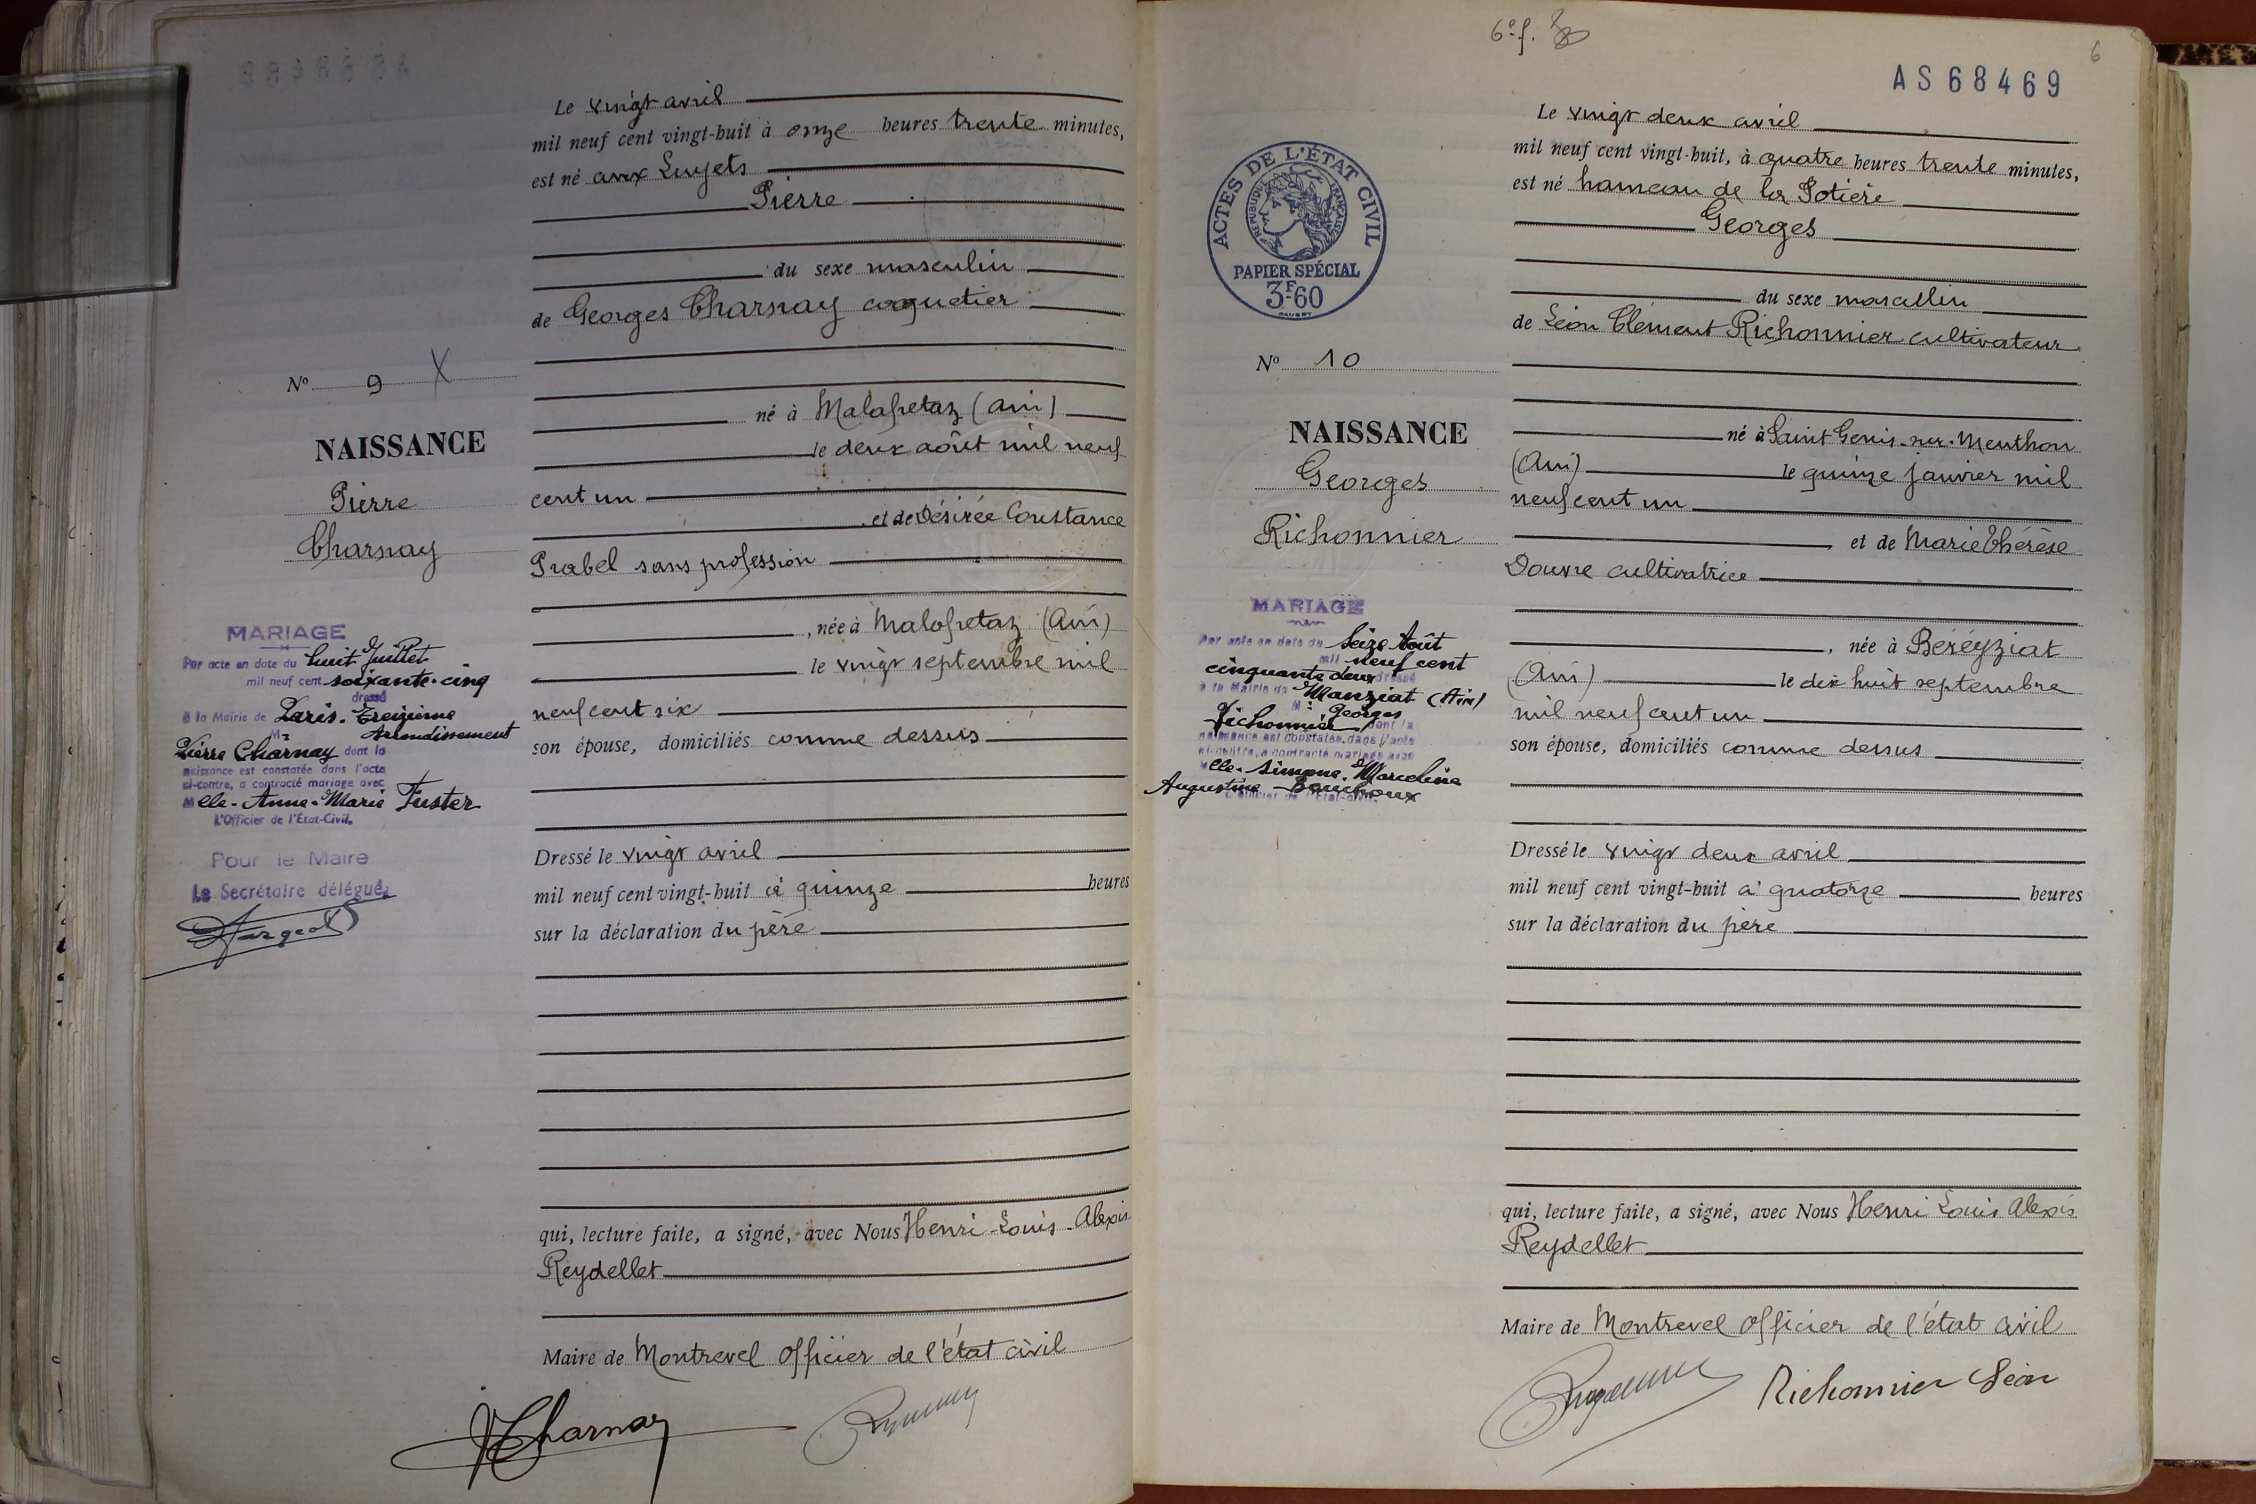 Le vingt avril
mil neuf cent vingt-huit à onze heures trente minutes,
est né aux Luyets
Pierre
du sexe masculin
de Georges Charnay coquetier
né à Malafretaz (Ain)
le deux août mil neuf
cent un
et de Désirée Constance
Prabel sans profession
, née à Malafretaz (Ain)
le vingt septembre mil
neuf cent six
son épouse, domiciliés comme dessus
Dressé le vingt avril
mil neuf cent vingt-huit à quinze heures
sur la déclaration du père
qui, lecture faite, a signé, avec Nous Henri Louis Alexis
Reydellet
Maire de Montrevel officier de l'état civil
Charnay
No 9 X
NAISSANCE
Pierre
Charnay
MARIAGE
Par acte en date du huit Juillet
mil neuf cent soixante-cinq
dressé
à la Mairie de Paris. Treizième
Arrondissement
Mr
Pierre Charnay dont la
naissance est constatée dans l'acte
ci-contre, a contracté mariage avec
Melle. Anne-Marie Fuster
L'Officier de l'État-Civil.
Pour le Maire
Le Secrétaire délégué,
6e f.
6
AS68469
Le vingt deux avril
mil neuf cent vingt-huit, à quatre heures trente minutes,
est né hameau de la Potière
Georges
du sexe masculin
de Léon Clément Richonnier cultivateur
né à Saint Genis-sur-Menthon
(Ain) le quinze janvier mil
neuf cent un
et de Marie Thérèse
Douvre cultivatrice
, née à Béréyziat
(Ain) le dix huit septembre
mil neuf cent un
son épouse, domiciliés comme dessus
Dressé le vingt deux avril
mil neuf cent vingt-huit à quatorze heures
sur la déclaration du père
qui, lecture faite, a signé, avec Nous Henri Louis Alexis
Reydellet
Maire de Montrevel officier de l'état civil
Richonnier Léon
ACTES DE L'ÉTAT CIVIL
RÉPUBLIQUE FRANÇAISE
PAPIER SPÉCIAL
3F60
No 10
NAISSANCE
Georges
Richonnier
MARIAGE
Par acte en date du Seize Août
mil neuf cent
cinquante deux dressé
à la Mairie de Manziat (Ain)
Mr Georges
Richonnier dont la
naissance est constatée dans l'acte
ci-contre, a contracté mariage avec
Melle. Simone. Marceline
Augustine Bouchoux
L'Officier de l'État-Civil.